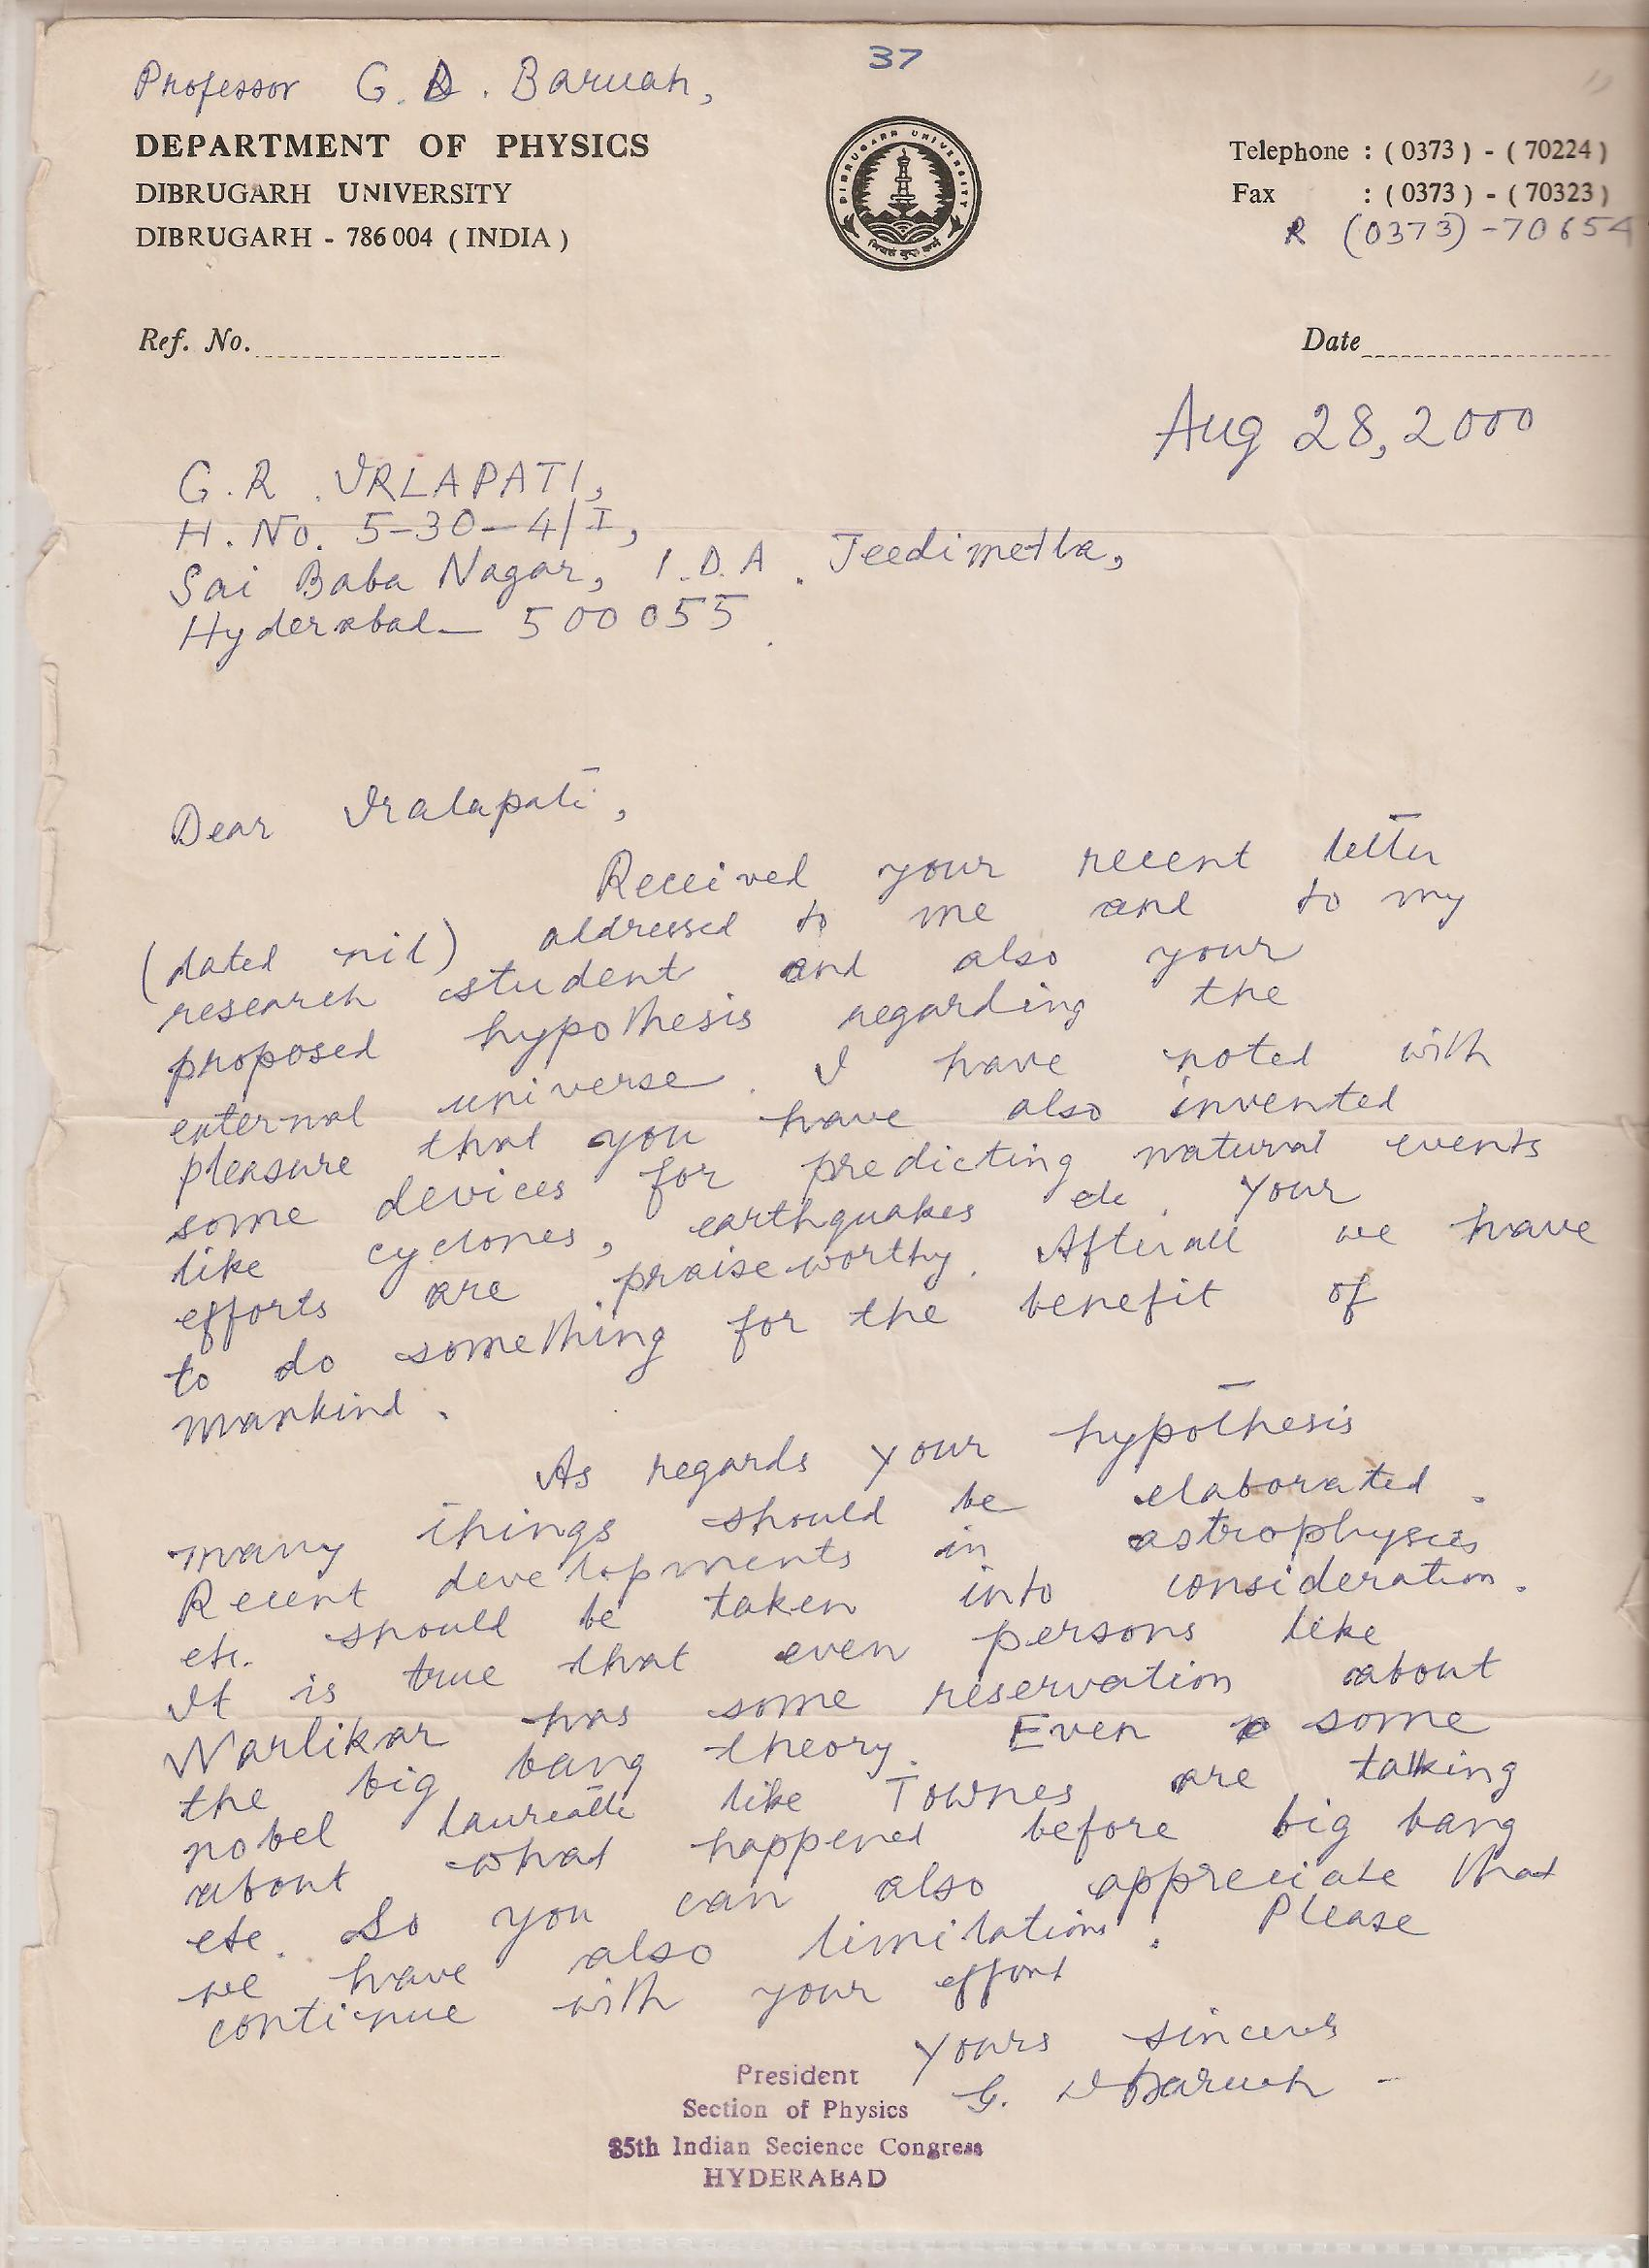 37
Professor G. D. Baruah,
DEPARTMENT OF PHYSICS
DIBRUGARH UNIVERSITY
DIBRUGARH - 786 004 ( INDIA )
DIBRUGARH UNIVERSITY
Telephone : ( 0373 ) - ( 70224 )
Fax : ( 0373 ) - ( 70323 )
R (0373) - 70654
Ref. No.
Date
Aug 28, 2000
G. R. VRLAPATI,
H. No. 5-30-4/I,
Sai Baba Nagar, I.D.A. Jeedimetla,
Hyderabad - 500 055.
Dear Vralapati,
Received your recent letter
(dated nil) addressed to me and to my
research student and also your
proposed hypothesis regarding the
external universe. I have noted with
pleasure that you have also invented
some devices for predicting natural events
like cyclones, earthquakes etc. Your
efforts are praiseworthy. Afterall we have
to do something for the benefit of
mankind.
As regards your hypothesis
many things should be elaborated.
Recent developments in astrophysics
etc. should be taken into consideration.
It is true that even persons like
Narlikar has some reservation about
the big bang theory. Even some
nobel laureate like Townes are talking
about what happened before big bang
etc. So you can also appreciate that
we have also limitations. Please
continue with your effort
Yours sincerely
G. D Baruah
President
Section of Physics
85th Indian Secience Congress
HYDERABAD